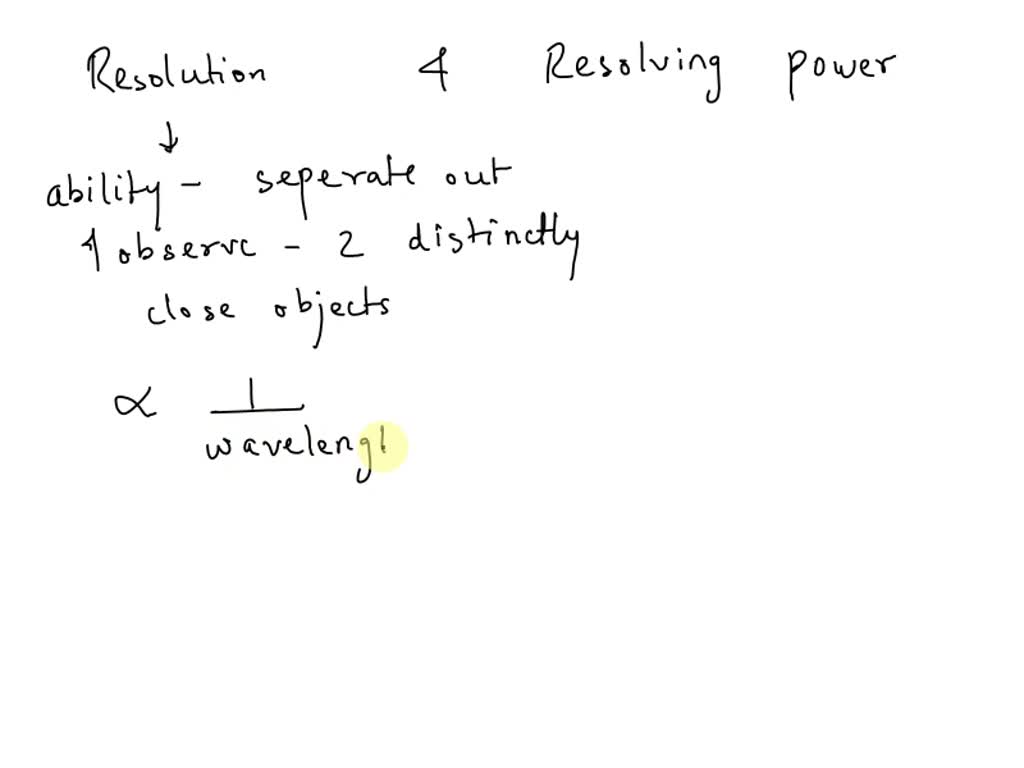 Resolution & Resolving power
↓
ability - seperate out
& observe - 2 distinctly
close objects
∝ 1
wavelengt